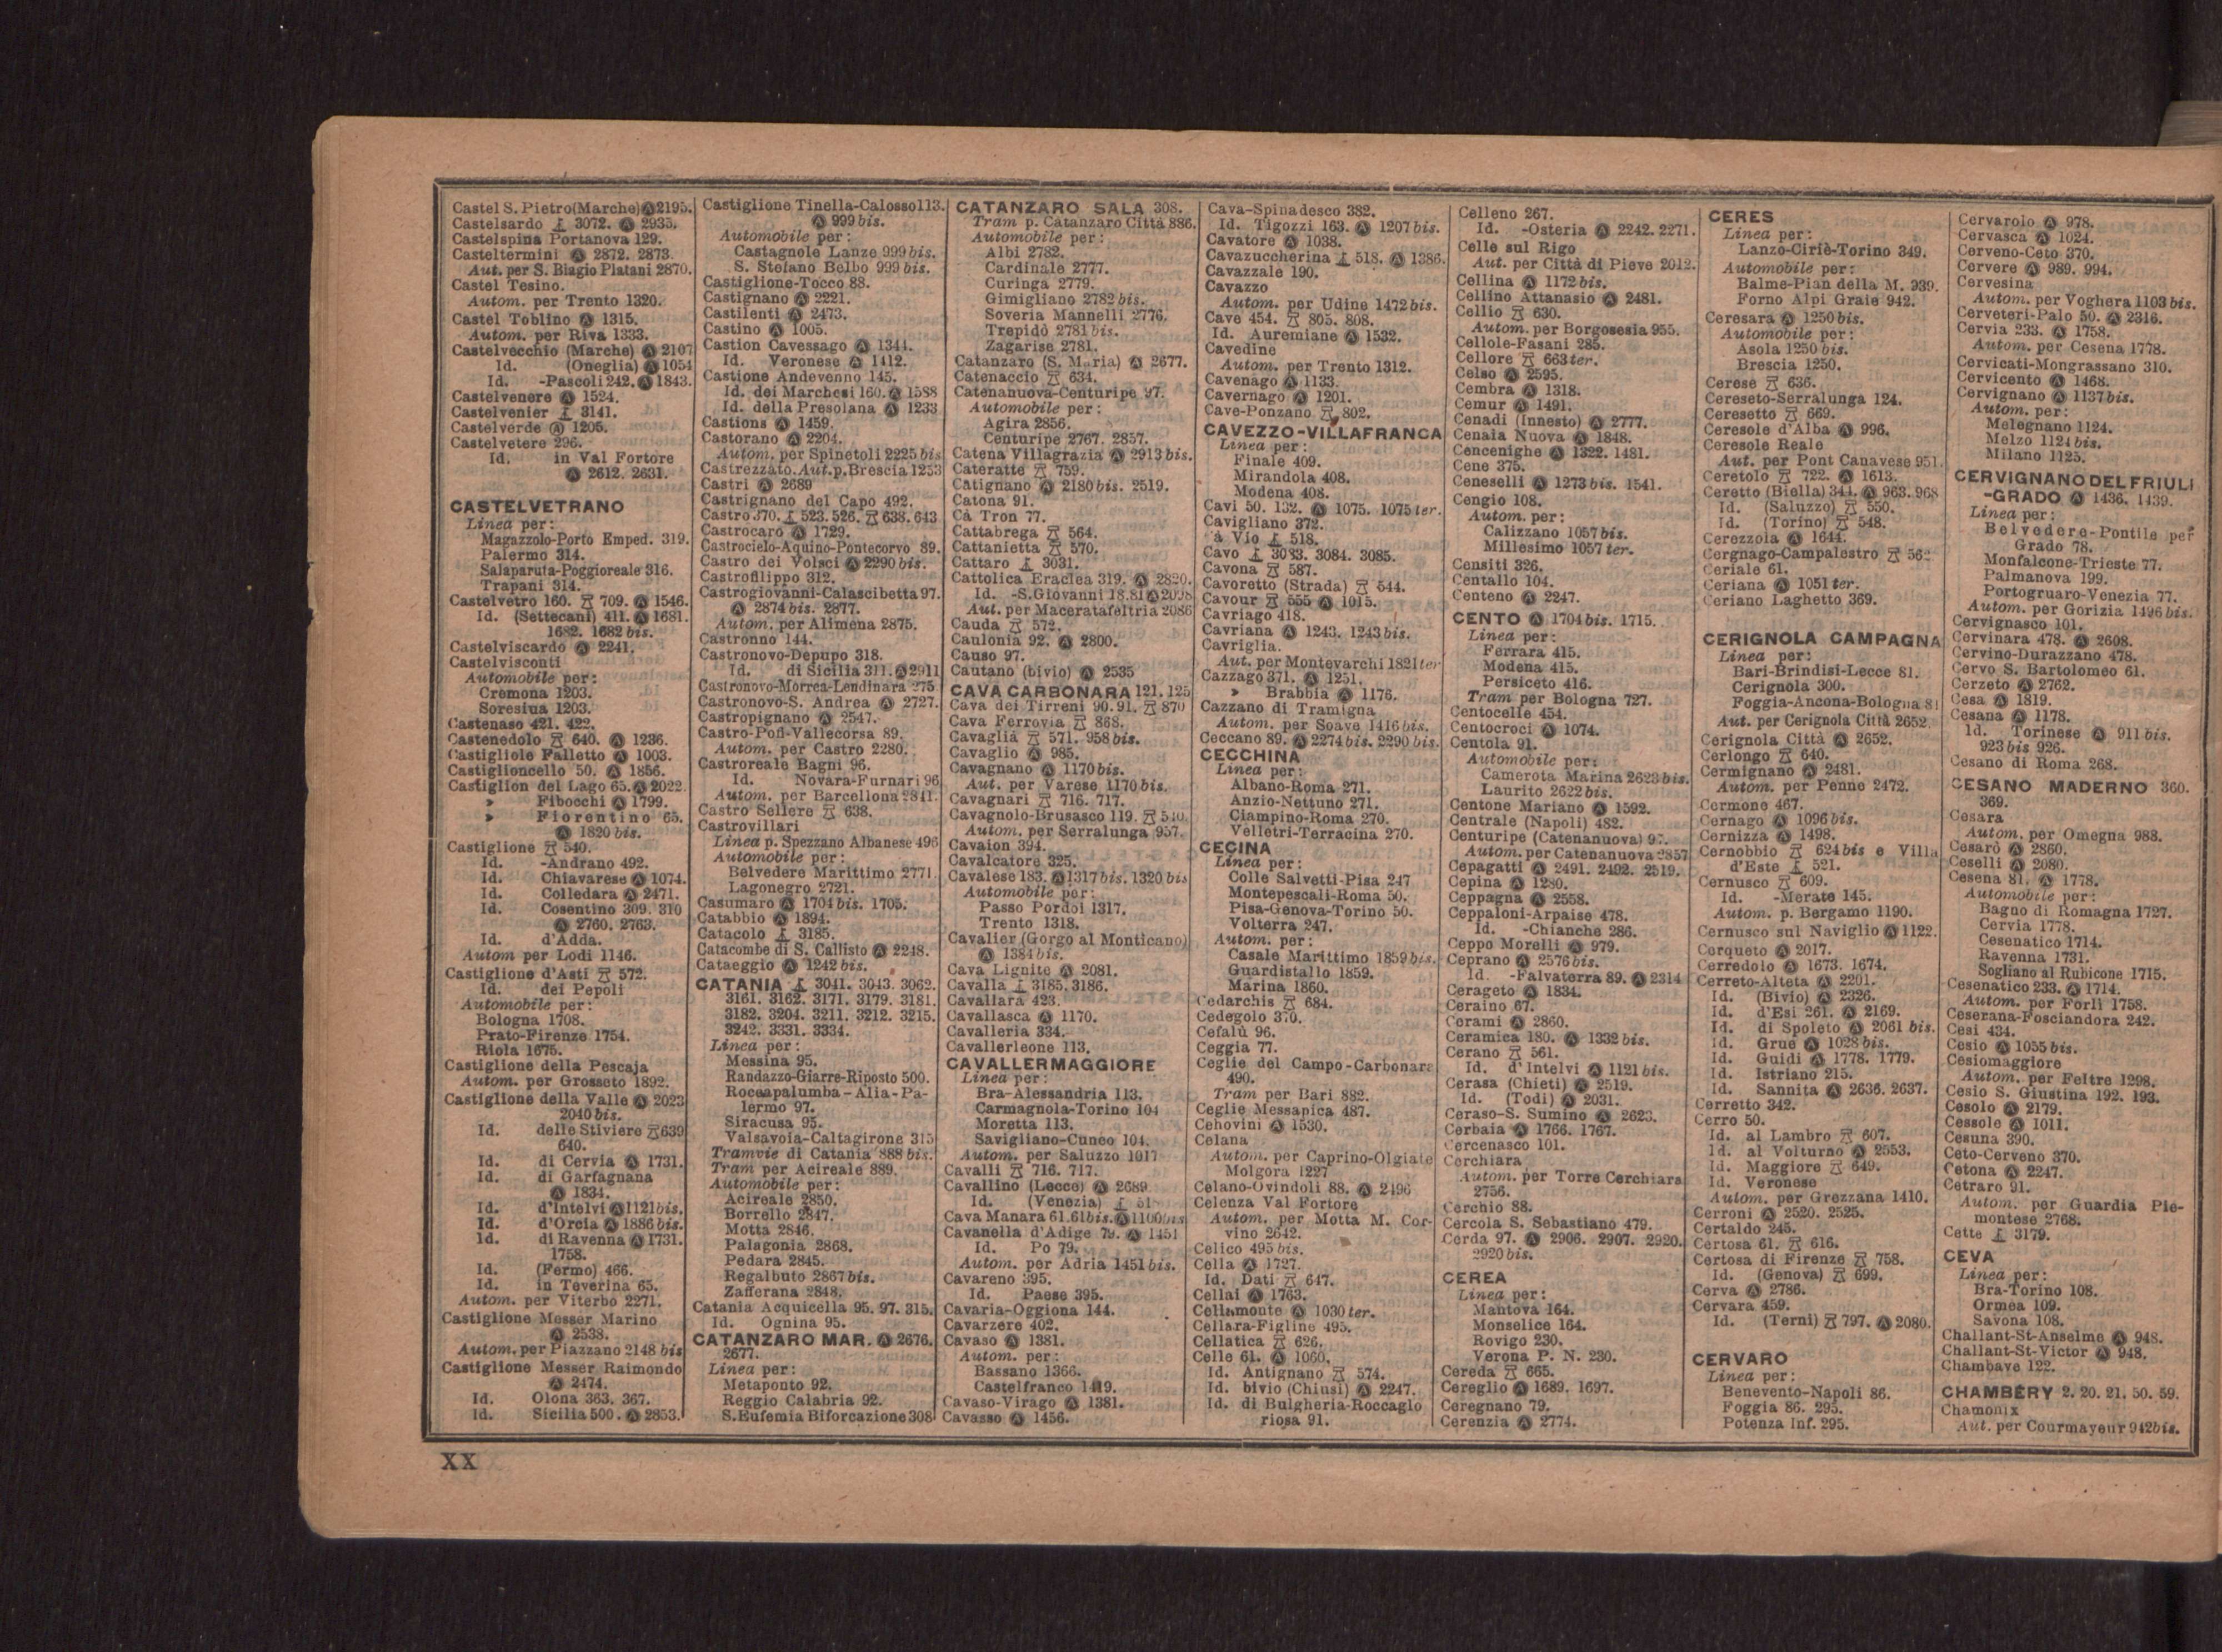 Castel S. Pietro (Marche) Ⓐ 2195.
Castelsardo 3072. Ⓐ 2935.
Castelspina Portanova 129.
Casteltermini Ⓐ 2872. 2873.
Aut. per S. Biagio Platani 2870.
Castel Tesino.
Autom. per Trento 1320.
Castel Toblino Ⓐ 1315.
Autom. per Riva 1333.
Castelvecchio (Marche) Ⓐ 2107
Id. (Oneglia) Ⓐ 1054
Id. -Pascoli 242. Ⓐ 1843.
Castelvenere Ⓐ 1524.
Castelvenier 3141.
Castelverde Ⓐ 1205.
Castelvetere 296.
Id. in Val Fortore
Ⓐ 2612. 2631.
CASTELVETRANO
Linea per:
Magazzolo-Porto Emped. 319.
Palermo 314.
Salaparuta-Poggioreale 316.
Trapani 314.
Castelvetro 160. 709. Ⓐ 1546.
Id. (Settecani) 411. Ⓐ 1681.
1682. 1682 bis.
Castelviscardo Ⓐ 2241.
Castelvisconti
Automobile per:
Cremona 1203.
Soresina 1203.
Castenaso 421. 422.
Castenedolo 640. Ⓐ 1236.
Castigliole Falletto Ⓐ 1003.
Castiglioncello 50. Ⓐ 1856.
Castiglion del Lago 65. Ⓐ 2022
» Fibocchi Ⓐ 1799.
» Fiorentino 65.
Ⓐ 1820 bis.
Castiglione 540.
Id. -Andrano 492.
Id. Chiavarese Ⓐ 1074.
Id. Colledara Ⓐ 2471.
Id. Cosentino 309. 310
Ⓐ 2760. 2763.
Id. d'Adda.
Autom per Lodi 1146.
Castiglione d'Asti 572.
Id. dei Pepoli
Automobile per:
Bologna 1708.
Prato-Firenze 1754.
Riola 1675.
Castiglione della Pescaja
Autom. per Grosseto 1892.
Castiglione della Valle Ⓐ 2023
2040 bis.
Id. delle Stiviere 639
640.
Id. di Cervia Ⓐ 1731.
Id. di Garfagnana
Ⓐ 1834.
Id. d'Intelvi Ⓐ 1121 bis.
Id. d'Orcia Ⓐ 1886 bis.
Id. di Ravenna Ⓐ 1731.
1758.
Id. (Fermo) 466.
Id. in Teverina 65.
Autom. per Viterbo 2271.
Castiglione Messer Marino
Ⓐ 2538.
Autom. per Piazzano 2148 bis
Castiglione Messer Raimondo
Ⓐ 2474.
Id. Olona 363. 367.
Id. Sicilia 500. Ⓐ 2853.
Castiglione Tinella-Calosso 113.
Ⓐ 999 bis.
Automobile per:
Castagnole Lanze 999 bis.
S. Stefano Belbo 999 bis.
Castiglione-Tocco 88.
Castignano Ⓐ 2221.
Castilenti Ⓐ 2473.
Castino Ⓐ 1005.
Castion Cavessago Ⓐ 1344.
Id. Veronese Ⓐ 1412.
Castione Andevenno 145.
Id. dei Marchesi 160. Ⓐ 1588
Id. della Presolana Ⓐ 1233
Castions Ⓐ 1459.
Castorano Ⓐ 2204.
Autom. per Spinetoli 2225 bis
Castrezzato. Aut. p. Brescia 1253
Castri Ⓐ 2689
Castrignano del Capo 492.
Castro 370. 523. 526. 638. 643
Castrocaro Ⓐ 1729.
Castrocielo-Aquino-Pontecorvo 89.
Castro dei Volsci Ⓐ 2290 bis.
Castrofilippo 312.
Castrogiovanni-Calascibetta 97.
Ⓐ 2874 bis. 2877.
Autom. per Alimena 2875.
Castronno 144.
Castronovo-Depupo 318.
Id. di Sicilia 311. Ⓐ 2911
Castronovo-Morrea-Lendinara 275
Castronovo-S. Andrea Ⓐ 2727.
Castropignano Ⓐ 2547.
Castro-Pofi-Vallecorsa 89.
Autom. per Castro 2280.
Castroreale Bagni 96.
Id. Novara-Furnari 96
Autom. per Barcellona 2841.
Castro Sellere 638.
Castrovillari
Linea p. Spezzano Albanese 496
Automobile per:
Belvedere Marittimo 2771
Lagonegro 2721.
Casumaro Ⓐ 1704 bis. 1705.
Catabbio Ⓐ 1894.
Catacolo 3185.
Catacombe di S. Callisto Ⓐ 2248.
Cataeggio Ⓐ 1242 bis.
CATANIA 3041. 3043. 3062.
3161. 3162. 3171. 3179. 3181.
3182. 3204. 3211. 3212. 3215.
3242. 3331. 3334.
Linea per:
Messina 95.
Randazzo-Giarre-Riposto 500.
Roccapalumba-Alia-Pa-
lermo 97.
Siracusa 95.
Valsavoia-Caltagirone 315
Tramvie di Catania 888 bis.
Tram per Acireale 889.
Automobile per:
Acireale 2850.
Borrello 2847.
Motta 2846.
Palagonia 2868.
Pedara 2845.
Regalbuto 2867 bis.
Zafferana 2848.
Catania Acquicella 95. 97. 315.
Id. Ognina 95.
CATANZARO MAR. Ⓐ 2676.
2677.
Linea per:
Metaponto 92.
Reggio Calabria 92.
S. Eufemia Biforcazione 308
CATANZARO SALA 308.
Tram p. Catanzaro Città 886.
Automobile per:
Albi 2782.
Cardinale 2777.
Curinga 2779.
Gimigliano 2782 bis.
Soveria Mannelli 2776.
Trepidò 2781 bis.
Zagarise 2781.
Catanzaro (S. Maria) Ⓐ 2677.
Catenaccio 634.
Catenanuova-Centuripe 97.
Automobile per:
Agira 2856.
Centuripe 2767. 2857.
Catena Villagrazia Ⓐ 2913 bis.
Cateratte 759.
Catignano Ⓐ 2180 bis. 2519.
Catona 91.
Cà Tron 77.
Cattabrega 564.
Cattanietta 570.
Cattaro 3031.
Cattolica Eraclea 319. Ⓐ 2820.
Id. -S. Giovanni
Aut. per Maceratafeltria 2086
Cauda 572.
Caulonia 92. Ⓐ 2800.
Causo 97.
Cautano (bivio) Ⓐ 2535
CAVA CARBONARA 121. 125
Cava dei Tirreni 90. 91. 870
Cava Ferrovia 868.
Cavaglià 571. 958 bis.
Cavaglio Ⓐ 985.
Cavagnano Ⓐ 1170 bis.
Aut. per Varese 1170 bis.
Cavagnari 716. 717.
Cavagnolo-Brusasco 119. 540.
Autom. per Serralunga 957.
Cavaion 394.
Cavalcatore 325.
Cavalese 183. Ⓐ 1317 bis. 1320 bis
Automobile per:
Passo Pordoi 1317.
Trento 1318.
Cavalier (Gorgo al Monticano)
Ⓐ 1384 bis.
Cava Lignite Ⓐ 2081.
Cavalla 3185. 3186.
Cavallara 423.
Cavallasca Ⓐ 1170.
Cavalleria 334.
Cavallerleone 113.
CAVALLERMAGGIORE
Linea per:
Bra-Alessandria 113.
Carmagnola-Torino 104
Moretta 113.
Savigliano-Cuneo 104.
Autom. per Saluzzo 1017
Cavalli 716. 717.
Cavallino (Lecce) Ⓐ 2689
Id. (Venezia) 51
Cava Manara 61. 61 bis. Ⓐ 1100 bis
Cavanella d'Adige 79. Ⓐ 1451
Id. Po 79.
Autom. per Adria 1451 bis.
Cavareno 395.
Id. Paese 395.
Cavaria-Oggiona 144.
Cavarzere 402.
Cavaso Ⓐ 1381.
Autom. per:
Bassano 1366.
Castelfranco 1419.
Cavaso-Virago Ⓐ 1381.
Cavasso Ⓐ 1456.
Cava-Spinadesco 382.
Id. Tigozzi 163. Ⓐ 1207 bis.
Cavatore Ⓐ 1038.
Cavazuccherina 518. Ⓐ 1386.
Cavazzale 190.
Cavazzo
Autom. per Udine 1472 bis.
Cave 454. 805. 808.
Id. Auremiane Ⓐ 1532.
Cavedine
Autom. per Trento 1312.
Cavenago Ⓐ 1133.
Cavernago Ⓐ 1201.
Cave-Ponzano 802.
CAVEZZO-VILLAFRANCA
Linea per:
Finale 409.
Mirandola 408.
Modena 408.
Cavi 50. 132. Ⓐ 1075. 1075 ter.
Cavigliano 372.
à Vio 518.
Cavo 3083. 3084. 3085.
Cavona 587.
Cavoretto (Strada) 544.
Cavour 555 Ⓐ 1015.
Cavriago 418.
Cavriana Ⓐ 1243. 1243 bis.
Cavriglia.
Aut. per Montevarchi 1821 ter
Cazzago 371. Ⓐ 1251.
» Brabbia Ⓐ 1176.
Cazzano di Tramigna
Autom. per Soave 1416 bis.
Ceccano 89. Ⓐ 2274 bis. 2290 bis.
CECCHINA
Linea per:
Albano-Roma 271.
Anzio-Nettuno 271.
Ciampino-Roma 270.
Velletri-Terracina 270.
CECINA
Linea per:
Colle Salvetti-Pisa 247
Montepescali-Roma 50.
Pisa-Genova-Torino 50.
Volterra 247.
Autom. per:
Casale Marittimo 1859 bis.
Guardistallo 1859.
Marina 1860.
Cedarchis 684.
Cedegolo 370.
Cefalù 96.
Ceggia 77.
Ceglie del Campo-Carbonara
490.
Tram per Bari 882.
Ceglie Messapica 487.
Cehovini Ⓐ 1530.
Celana
Autom. per Caprino-Olgiate
Molgora 1227
Celano-Ovindoli 88. Ⓐ 2496
Celenza Val Fortore
Autom. per Motta M. Cor-
vino 2642.
Celico 495 bis.
Cella Ⓐ 1727.
Id. Dati 647.
Cellai Ⓐ 1763.
Cellamonte Ⓐ 1030 ter.
Cellara-Figline 495.
Cellatica 626.
Celle 61. Ⓐ 1060.
Id. Antignano 574.
Id. bivio (Chiusi) Ⓐ 2247.
Id. di Bulgheria-Roccaglo
riosa 91.
Celleno 267.
Id. -Osteria Ⓐ 2242. 2271.
Celle sul Rigo
Aut. per Città di Pieve 2012.
Cellina Ⓐ 1172 bis.
Cellino Attanasio Ⓐ 2481.
Cellio 630.
Autom. per Borgosesia 955.
Cellole-Fasani 285.
Cellore 663 ter.
Celso Ⓐ 2595.
Cembra Ⓐ 1318.
Cemur Ⓐ 1491.
Cenadi (Innesto) Ⓐ 2777.
Cenaia Nuova Ⓐ 1848.
Cencenighe Ⓐ 1322. 1481.
Cene 375.
Ceneselli Ⓐ 1273 bis. 1541.
Cengio 108.
Autom. per:
Calizzano 1057 bis.
Millesimo 1057 ter.
Censiti 326.
Centallo 104.
Centeno Ⓐ 2247.
CENTO Ⓐ 1704 bis. 1715.
Linea per:
Ferrara 415.
Modena 415.
Persiceto 416.
Tram per Bologna 727.
Centocelle 454.
Centocroci Ⓐ 1074.
Centola 91.
Automobile per:
Camerota Marina 2623 bis.
Laurito 2622 bis.
Centone Mariano Ⓐ 1592.
Centrale (Napoli) 482.
Centuripe (Catenanuova) 97.
Autom. per Catenanuova 2857
Cepagatti Ⓐ 2491. 2492. 2519.
Cepina Ⓐ 1280.
Ceppagna Ⓐ 2558.
Ceppaloni-Arpaise 478.
Id. -Chianche 286.
Ceppo Morelli Ⓐ 979.
Ceprano Ⓐ 2576 bis.
Id. -Falvaterra 89. Ⓐ 2314
Cerageto Ⓐ 1834.
Ceraino 67.
Cerami Ⓐ 2860.
Ceramica 180. Ⓐ 1332 bis.
Cerano 561.
Id. d'Intelvi Ⓐ 1121 bis.
Cerasa (Chieti) Ⓐ 2519.
Id. (Todi) Ⓐ 2031.
Ceraso-S. Sumino Ⓐ 2623.
Cerbaia Ⓐ 1766. 1767.
Cercenasco 101.
Cerchiara
Autom. per Torre Cerchiara
2756.
Cerchio 88.
Cercola S. Sebastiano 479.
Cerda 97. Ⓐ 2906. 2907. 2920.
2920 bis.
CEREA
Linea per:
Mantova 164.
Monselice 164.
Rovigo 230.
Verona P. N. 230.
Cereda 665.
Cereglio Ⓐ 1689. 1697.
Ceregnano 79.
Cerenzia Ⓐ 2774.
CERES
Linea per:
Lanzo-Ciriè-Torino 349.
Automobile per:
Balme-Pian della M. 939.
Forno Alpi Graie 942.
Ceresara Ⓐ 1250 bis.
Automobile per:
Asola 1250 bis.
Brescia 1250.
Cerese 636.
Cereseto-Serralunga 124.
Ceresetto 669.
Ceresole d'Alba Ⓐ 996.
Ceresole Reale
Aut. per Pont Canavese 951.
Ceretolo 722. Ⓐ 1613.
Ceretto (Biella) 344. Ⓐ 963. 968
Id. (Saluzzo) 550.
Id. (Torino) 548.
Cerezzola Ⓐ 1644.
Cergnago-Campalestro 562
Ceriale 61.
Ceriana Ⓐ 1051 ter.
Ceriano Laghetto 369.
CERIGNOLA CAMPAGNA
Linea per:
Bari-Brindisi-Lecce 81.
Cerignola 300.
Foggia-Ancona-Bologna 81
Aut. per Cerignola Città 2652.
Cerignola Città Ⓐ 2652.
Cerlongo 640.
Cermignano Ⓐ 2481.
Autom. per Penne 2472.
Cermone 467.
Cernago Ⓐ 1096 bis.
Cernizza Ⓐ 1498.
Cernobbio 624 bis e Villa
d'Este 521.
Cernusco 609.
Id. -Merate 145.
Autom. p. Bergamo 1190.
Cernusco sul Naviglio Ⓐ 1122.
Cerqueto Ⓐ 2017.
Cerredolo Ⓐ 1673. 1674.
Cerreto-Alteta Ⓐ 2201.
Id. (Bivio) Ⓐ 2326.
Id. d'Esi 261. Ⓐ 2169.
Id. di Spoleto Ⓐ 2061 bis.
Id. Grue Ⓐ 1028 bis.
Id. Guidi Ⓐ 1778. 1779.
Id. Istriano 215.
Id. Sannita Ⓐ 2636. 2637.
Cerretto 342.
Cerro 50.
Id. al Lambro 607.
Id. al Volturno Ⓐ 2553.
Id. Maggiore 649.
Id. Veronese
Autom. per Grezzana 1410.
Cerroni Ⓐ 2520. 2525.
Certaldo 245.
Certosa 61. 616.
Certosa di Firenze 758.
Id. (Genova) 699.
Cerva Ⓐ 2786.
Cervara 459.
Id. (Terni) 797. Ⓐ 2080.
CERVARO
Linea per:
Benevento-Napoli 86.
Foggia 86. 295.
Potenza Inf. 295.
Cervarolo Ⓐ 978.
Cervasca Ⓐ 1024.
Cerveno-Ceto 370.
Cervere Ⓐ 989. 994.
Cervesina
Autom. per Voghera 1103 bis.
Cerveteri-Palo 50. Ⓐ 2316.
Cervia 233. Ⓐ 1758.
Autom. per Cesena 1778.
Cervicati-Mongrassano 310.
Cervicento Ⓐ 1468.
Cervignano Ⓐ 1137 bis.
Autom. per:
Melegnano 1124.
Melzo 1124 bis.
Milano 1125.
CERVIGNANO DEL FRIULI
-GRADO Ⓐ 1436. 1439.
Linea per:
Belvedere-Pontile per
Grado 78.
Monfalcone-Trieste 77.
Palmanova 199.
Portogruaro-Venezia 77.
Autom. per Gorizia 1496 bis.
Cervignasco 101.
Cervinara 478. Ⓐ 2608.
Cervino-Durazzano 478.
Cervo S. Bartolomeo 61.
Cerzeto Ⓐ 2762.
Cesa Ⓐ 1819.
Cesana Ⓐ 1178.
Id. Torinese Ⓐ 911 bis.
923 bis 926.
Cesano di Roma 268.
CESANO MADERNO 360.
369.
Cesara
Autom. per Omegna 988.
Cesarò Ⓐ 2860.
Ceselli Ⓐ 2080.
Cesena 81. Ⓐ 1778.
Automobile per:
Bagno di Romagna 1727.
Cervia 1778.
Cesenatico 1714.
Ravenna 1731.
Sogliano al Rubicone 1715.
Cesenatico 233. Ⓐ 1714.
Autom. per Forlì 1758.
Ceserana-Fosciandora 242.
Cesi 434.
Cesio Ⓐ 1055 bis.
Cesiomaggiore
Autom. per Feltre 1298.
Cesio S. Giustina 192. 193.
Cesolo Ⓐ 2179.
Cessole Ⓐ 1011.
Cesuna 390.
Ceto-Cerveno 370.
Cetona Ⓐ 2247.
Cetraro 91.
Autom. per Guardia Pie-
montese 2768.
Cette 3179.
CEVA
Linea per:
Bra-Torino 108.
Ormea 109.
Savona 108.
Challant-St-Anselme Ⓐ 948.
Challant-St-Victor Ⓐ 948.
Chambave 122.
CHAMBÉRY 2. 20. 21. 50. 59.
Chamonix
Aut. per Courmayeur 942 bis.
XX